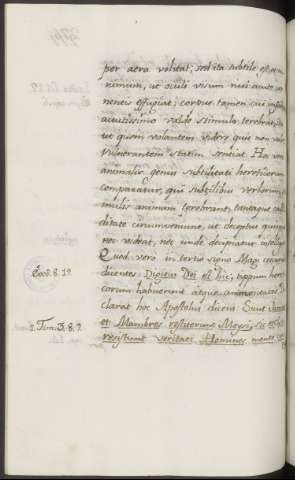 per aera volitat; sed ita subtile est, et
nimum, ut oculi visum nisi acute
nentis effugiat; corpus tamen cui insed
acutissimo valde stimulo terebrat, ita
ut quem volantem videre quis non vale
vulnerantem statim sentiat. Hoc
animalis genus subtilitati hereticorum
comparatur, qui subtilibus verborum
mulis animam terebrant; tantaque calli
ditate circumveniunt, ut deceptus quisque
nec videat, nec unde decipiatur intellig
Quod vero in tertio signo Magi cesserunt
Exod. 8. 19.
dicentes Digitus Dei est hic;
corum habuerunt atque
clarat hoc Apostolus dicens Sicut Jannes
2. Tim. 3. 8. 9.
et Mambres restiterunt Moysi, ita et
resistunt veritati. Homines mente